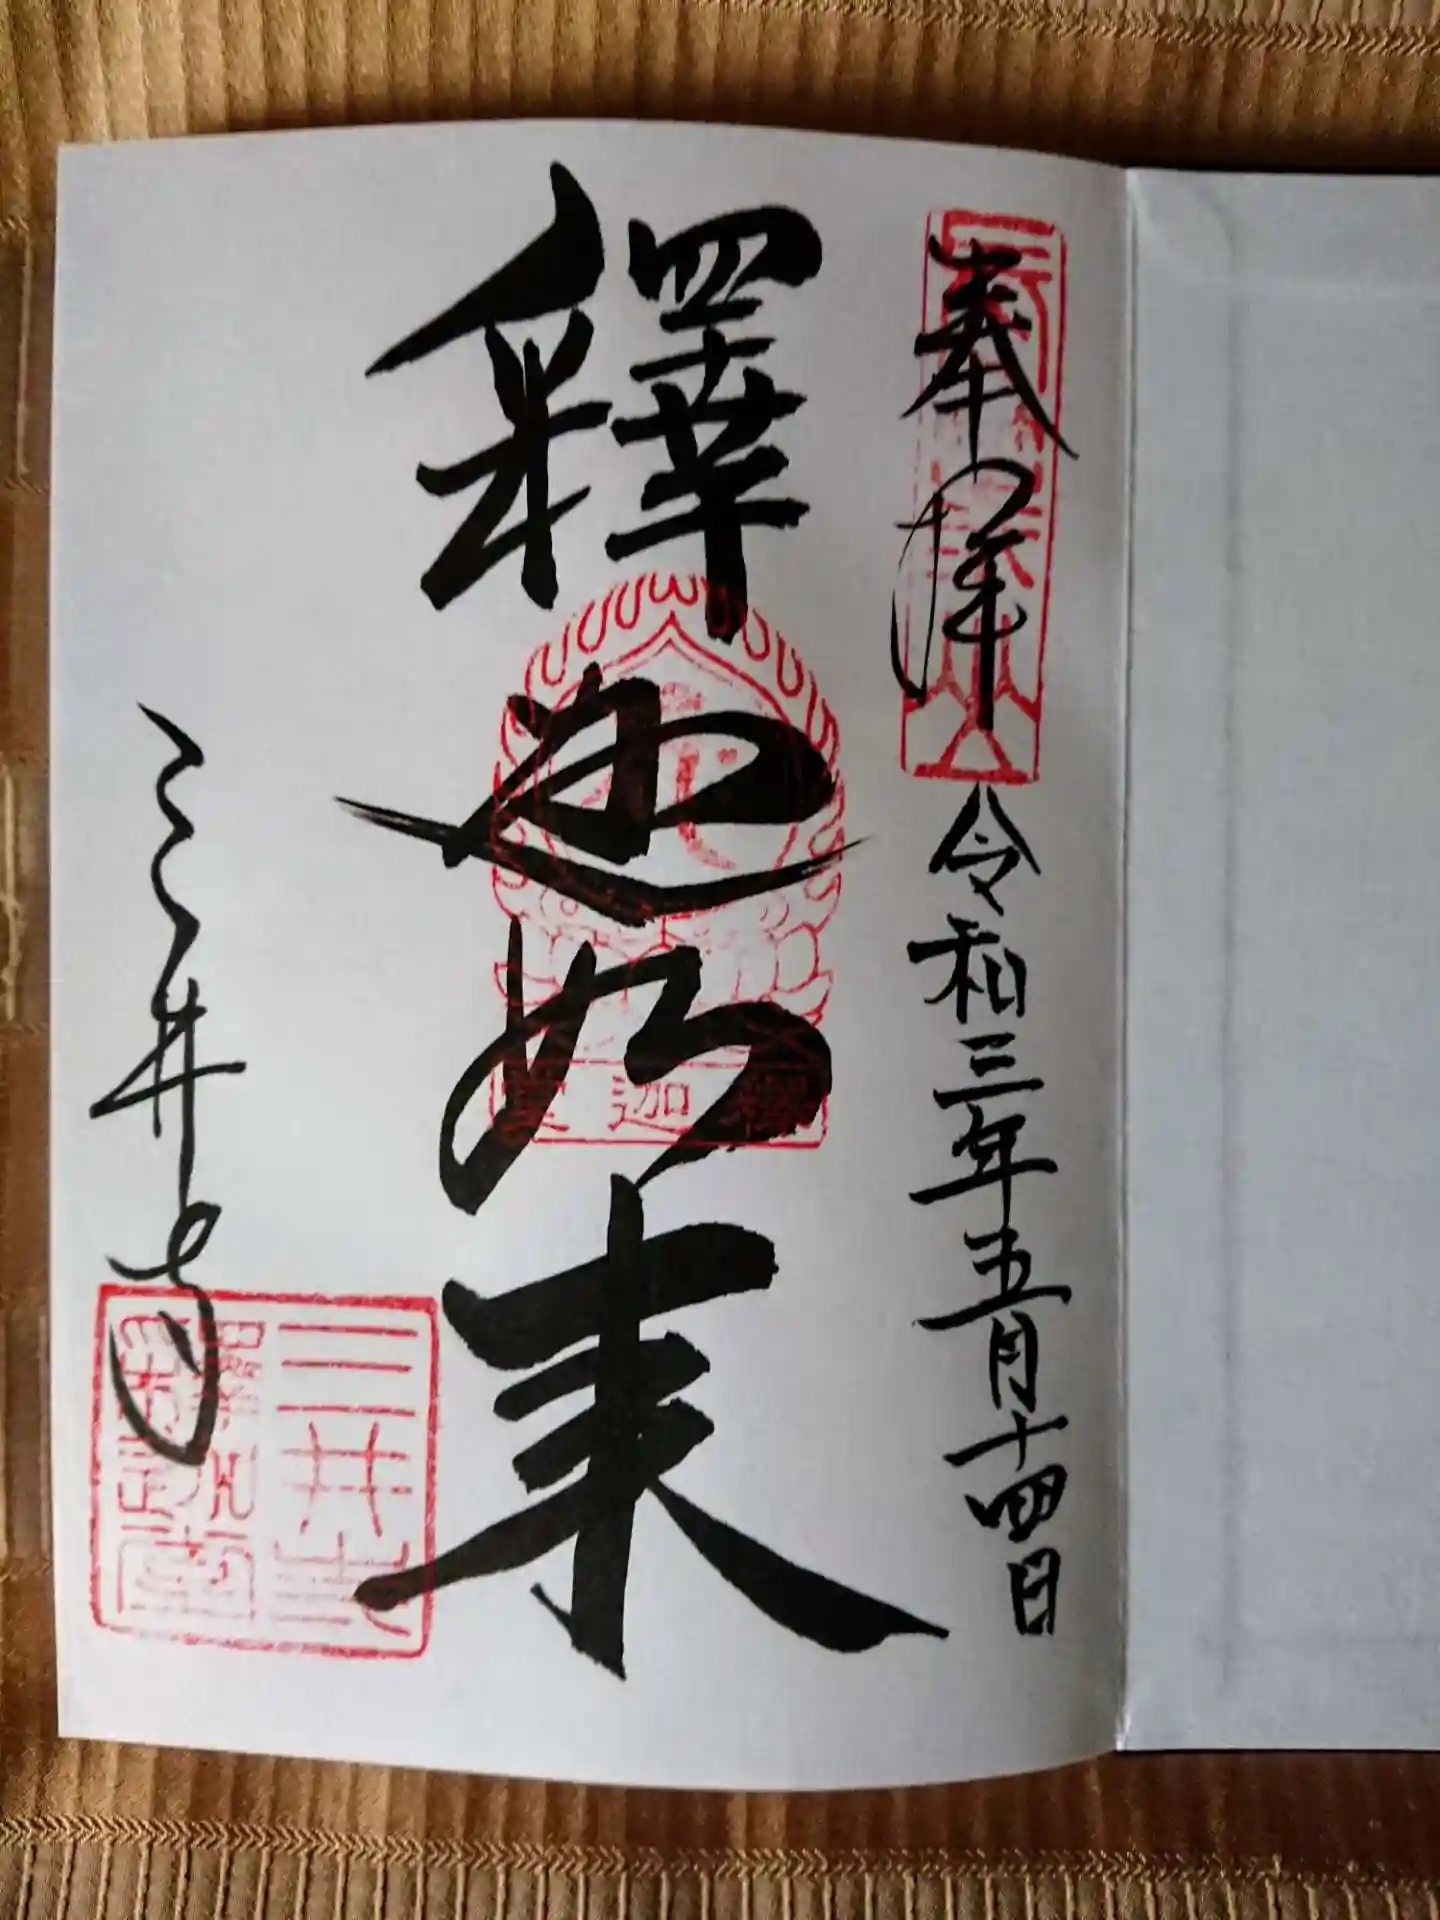 奉拝
令和三年五月十四日
釋迦如来
釋迦堂
三井寺
三井寺
釋迦堂